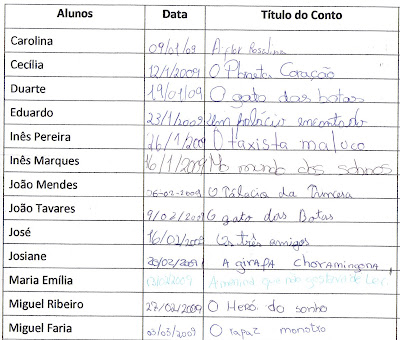 Alunos Data Título do Conto
Carolina 09/01/09 A flor Rosalina
Cecília 12/1/2009 O Planeta Coração
Duarte 19/01/09 O gato das botas
Eduardo 23/1/2009 Um palácio encantado
Inês Pereira 26/1/2009 O taxista maluco
Inês Marques 16/1/2009 No mundo dos sonhos
João Mendes 06-02-2009 O Palácio da Princesa
João Tavares 9/02/2009 O gato das Botas
José 16/02/2009 Os três amigos
Josiane 20/02/2009 A girafa choramingona
Maria Emília A menina que não gostava de Ler.
Miguel Ribeiro 27/02/2009 O Herói do sonho
Miguel Faria 03/03/2009 O rapaz monstro